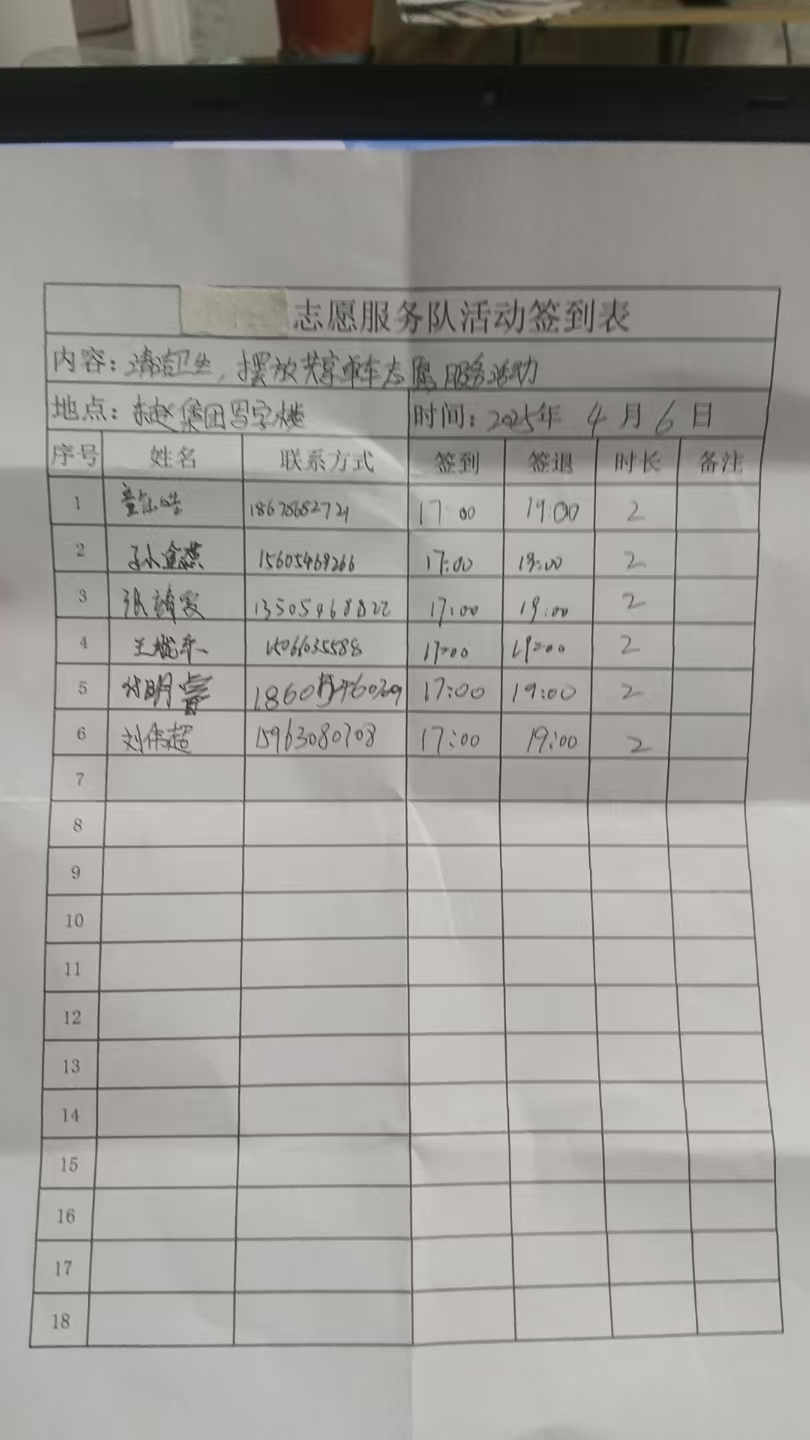 志愿服务队活动签到表
内容：清洁卫生，摆放共享单车志愿服务活动
地点：集团写字楼 时间：2025年 4 月 6 日
序号 姓名 联系方式 签到 签退 时长 备注
1 18678682721 17:00 19:00 2
2 孙金燕 15605469266 17:00 19:00 2
3 张靖雯 13505468822 17:00 19:00 2
4 17:00 19:00 2
5 付明 17:00 19:00 2
6 刘伟超 15963080708 17:00 19:00 2
7
8
9
10
11
12
13
14
15
16
17
18